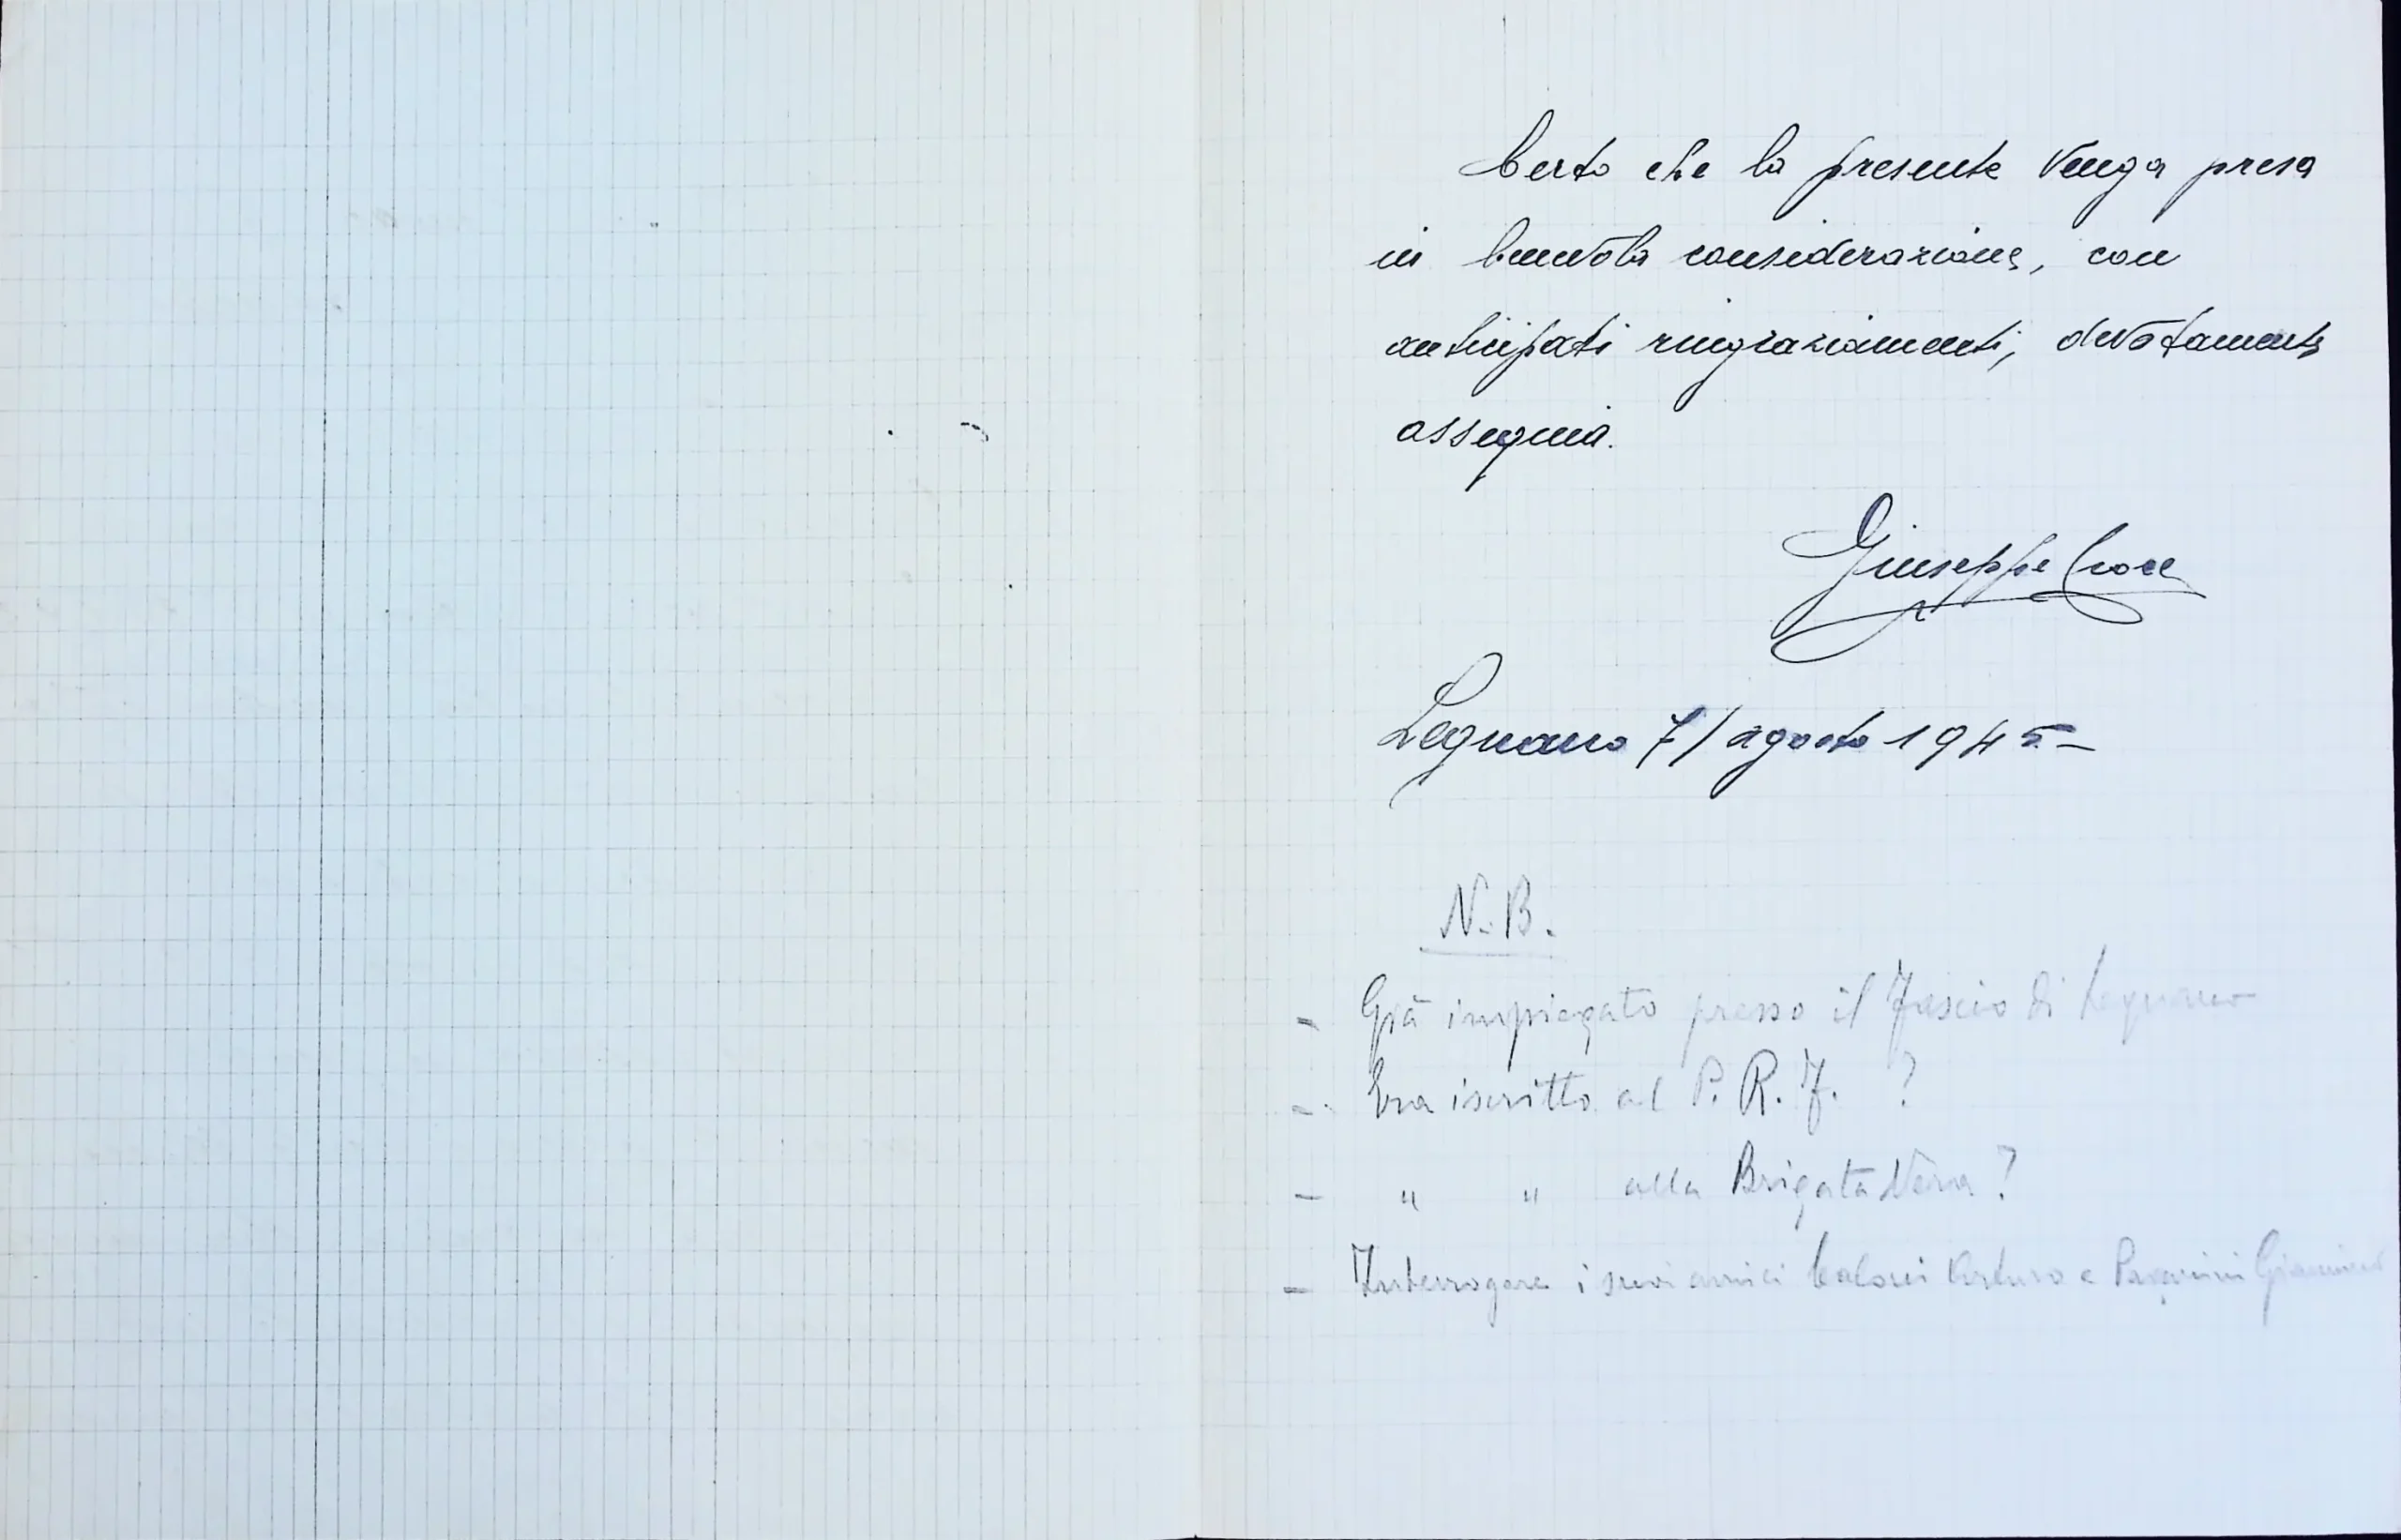 Certo che la presente venga presa
in benevola considerazione, con
anticipati ringraziamenti, devotamente
ossequia.
Giuseppe Croce
Legnano 7/ agosto 1945 –
N.B.
– Già impiegato presso il Fascio di Legnano
– Era iscritto al P.R.F. ?
– " " alla Brigata Nera ?
– Interrogare i suoi amici Arturo e